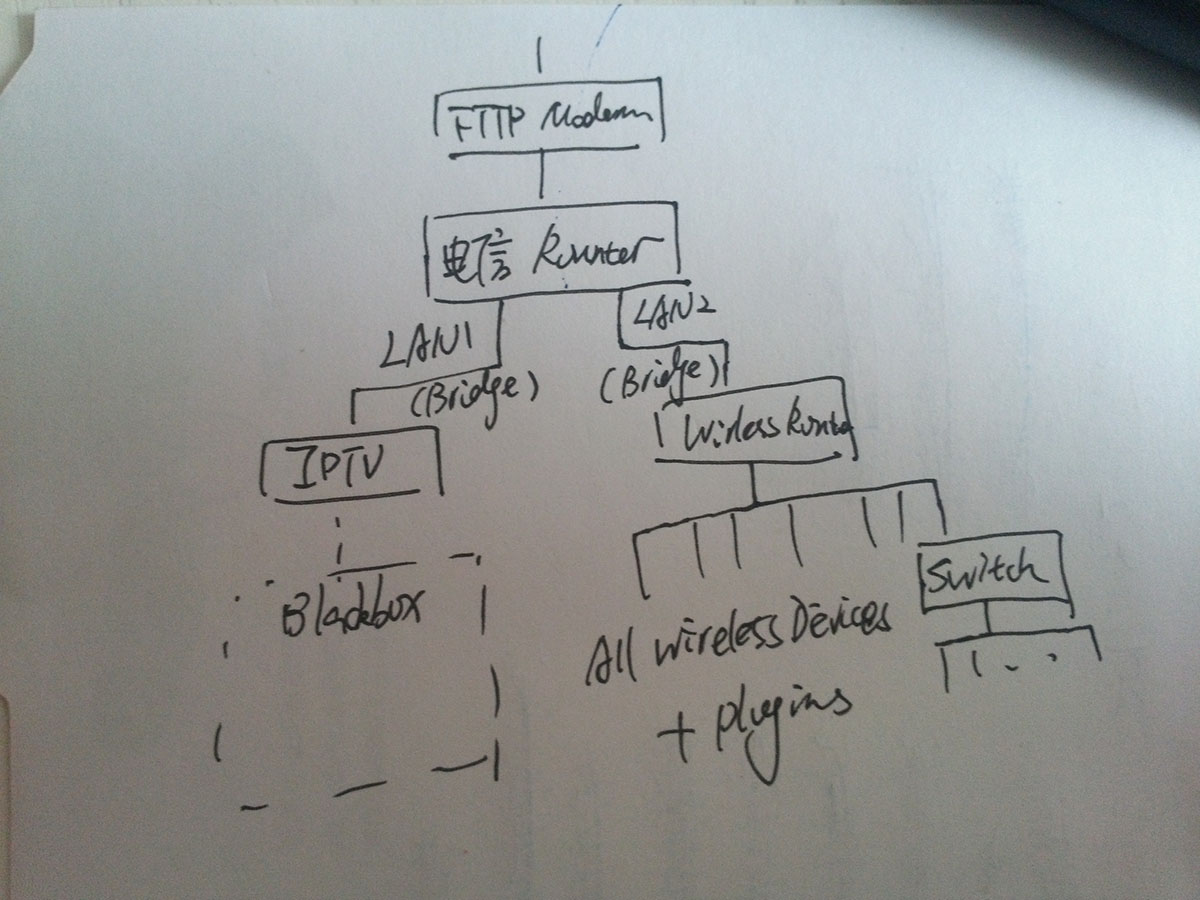 FTTP Modem
电信 Rounter
LAN1
(Bridge)
LAN2
(Bridge)
IPTV
Wirless Rounter
Blackbox
Switch
All wireless Devices
+ plugins